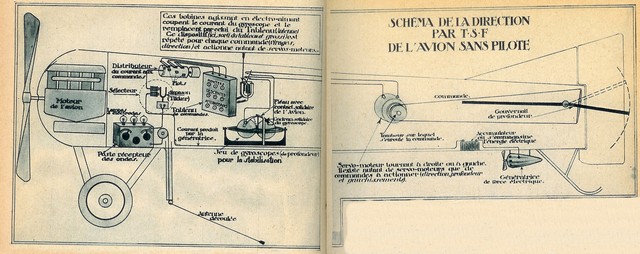 Ces bobines agissant en électro-aimant
coupent le courant du gyroscope et le
remplacent par celui du Tableau (interne)
Ce dispositif
répété pour chaque commande
direction) et actionne autant de servo-moteurs...
Distributeur
du courant aux
commandes
Plots
Sélecteur
Moteur
de l'avion
Tableau
de commandes
Lampes
Poste récepteur
des ondes.
Courant produit
par la
génératrice.
Anneau avec
contact solidaire
de l'Avion.
solidaire
du gyroscope.
Jeu de gyroscopes (de profondeur)
pour la stabilisation
Antenne
déroulée
SCHÉMA DE LA DIRECTION
PAR T·S·F
DE L'AVION SANS PILOTE
Commande
Gouvernail
de profondeur
Tambour sur lequel
s'enroule la commande
Accumulateur
où s'emmagasine
l'énergie électrique
Servo-moteur tournant à droite ou à gauche.
Il existe autant de servo-moteurs que de
commandes à actionner (direction, profondeur
et gauchissements).
Génératrice
de force électrique.